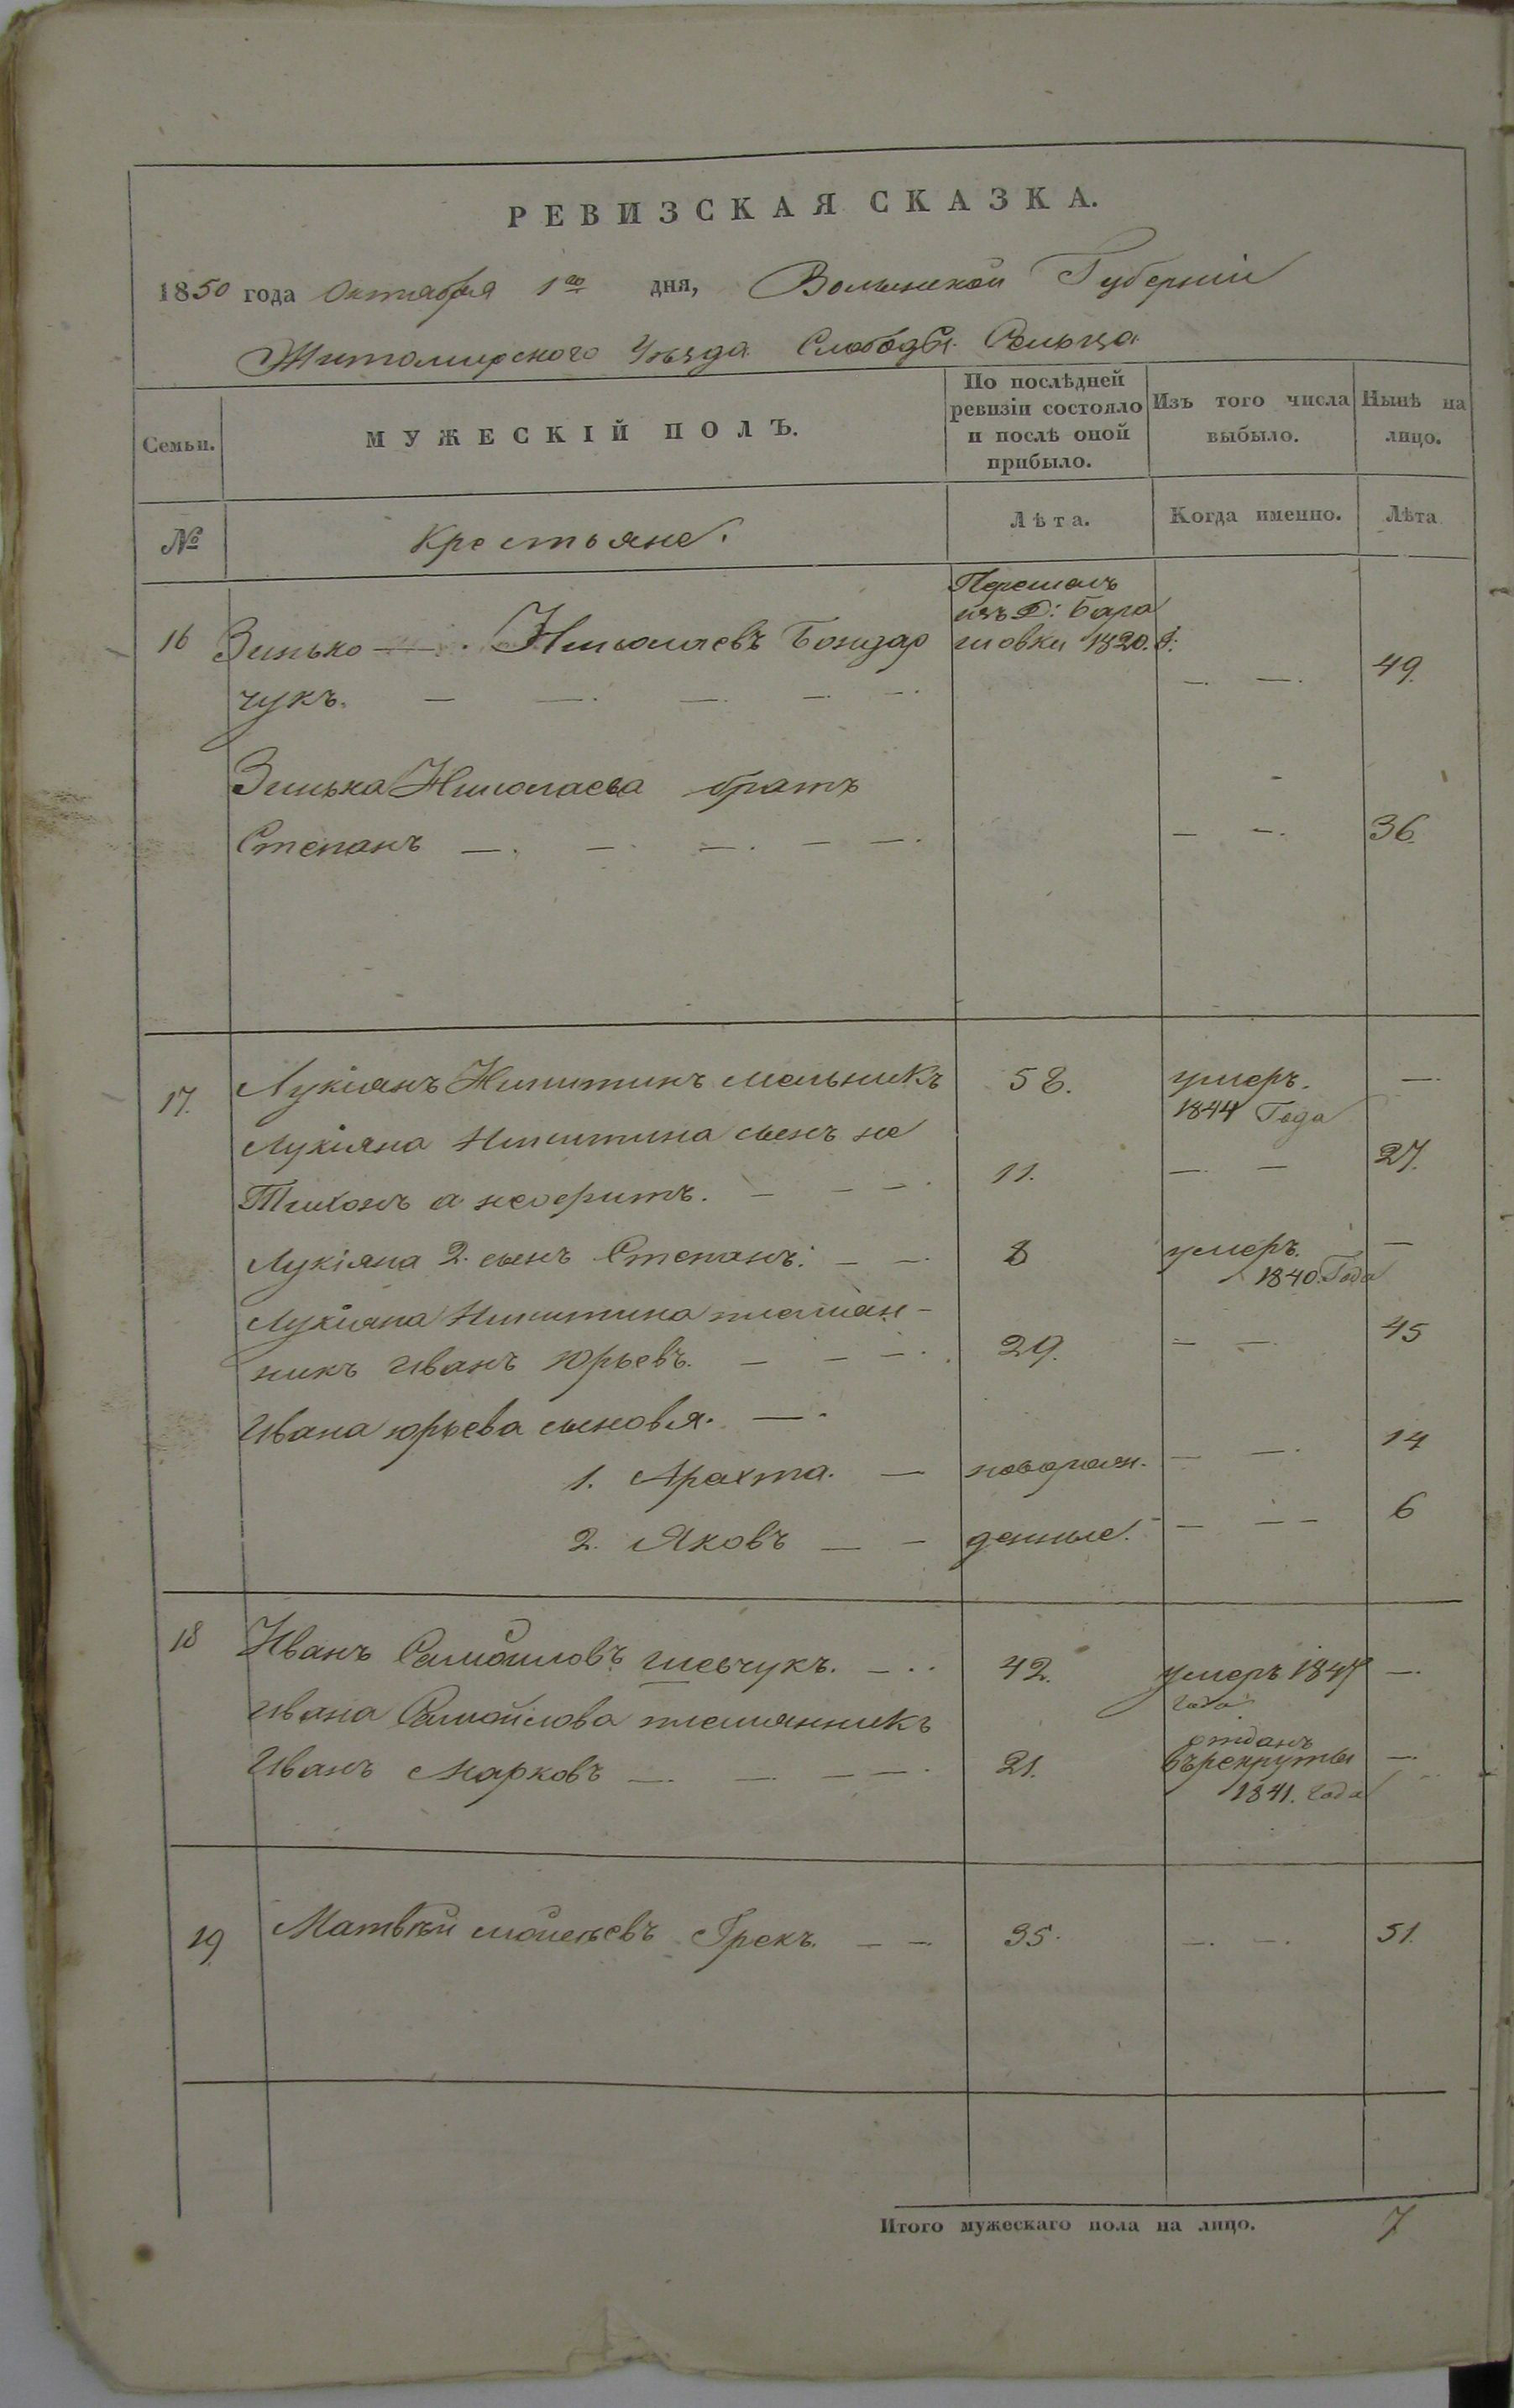 РЕВИЗСКАЯ СКАЗКА.
1850 года Октября 1го дня, Волынской Губерніи
Житомирского Уѣзда Слободы Сельца
Семьи.
МУЖЕСКІЙ ПОЛЪ.
По послѣдней ревизіи состояло и послѣ оной прибыло.
Изъ того числа выбыло.
Нынѣ на лицо.
№ Крестьяне. Лѣта. Когда именно. Лѣта
Перешолъ
изъ Д: Бара
16 Зинько — Николаевъ Бондар шовки 1820. Г.
чукъ. — — — — — — — 49.
Зинька Николаева братъ
Степанъ — — — — — — — 36.
17. Лукіянъ Никитинъ мельникъ 58. умеръ. —
1844 Года
Лукіяна Никитина сынъ не
Тихонъ а неофитъ. — — — 11. — — 27.
Лукіяна 2. сынъ Степанъ. — — 8 умеръ. —
1840. Года
Лукіяна Никитина племян-
никъ Иванъ Юрьевъ. — — — 29. — — 45
Ивана юрьева сыновья. —
1. Арахта. — новорож. — — 14
2. Яковъ — — денные. — — — 6
18 Иванъ Самойловъ шевчукъ. — 42. умеръ 1847 —
года
Ивана Самойлова племянникъ
отданъ
Иванъ Марковъ — — — — 21. въ рекруты —
1841. года
19 Матвѣй мойсѣевъ Грекъ. — — 35. — — 51.
Итого мужескаго пола на лицо. 7